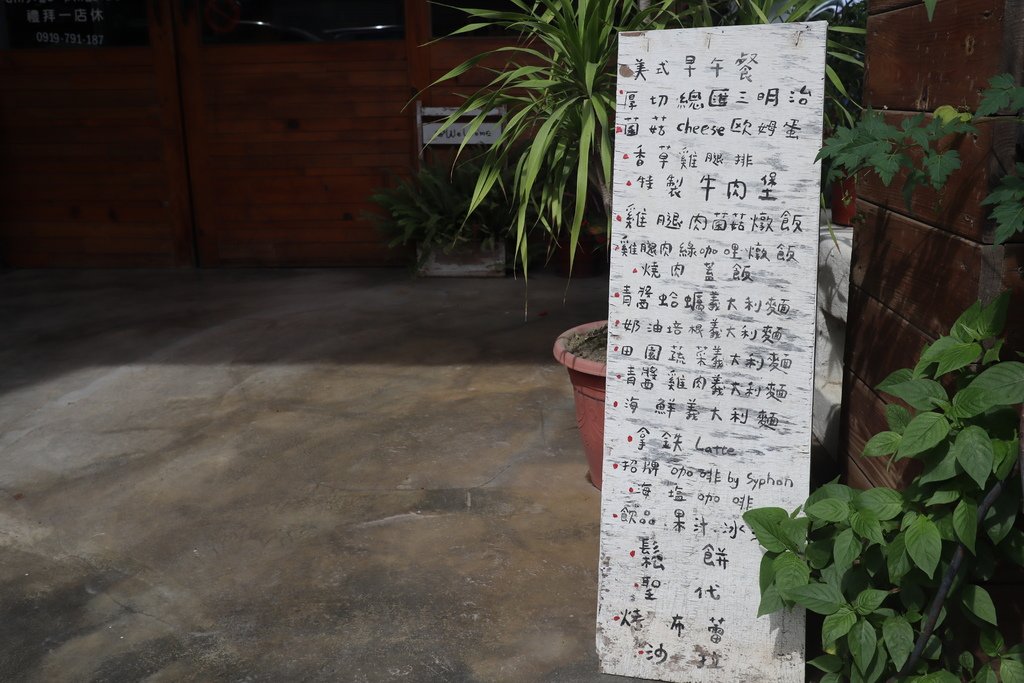 禮拜一店休
0919-791-187
Welcome
美式早午餐
厚切總匯三明治
菌菇cheese歐姆蛋
香草雞腿排
特製牛肉堡
雞腿肉菌菇燉飯
雞腿肉綠咖哩燉飯
燒肉蓋飯
青醬蛤蠣義大利麵
奶油培根義大利麵
田園蔬菜義大利麵
青醬雞肉義大利麵
海鮮義大利麵
拿鉄 Latte
招牌咖啡 by Syphon
海塩咖啡
飲品.果汁.冰
鬆餅
聖代
燒布蕾
沙拉